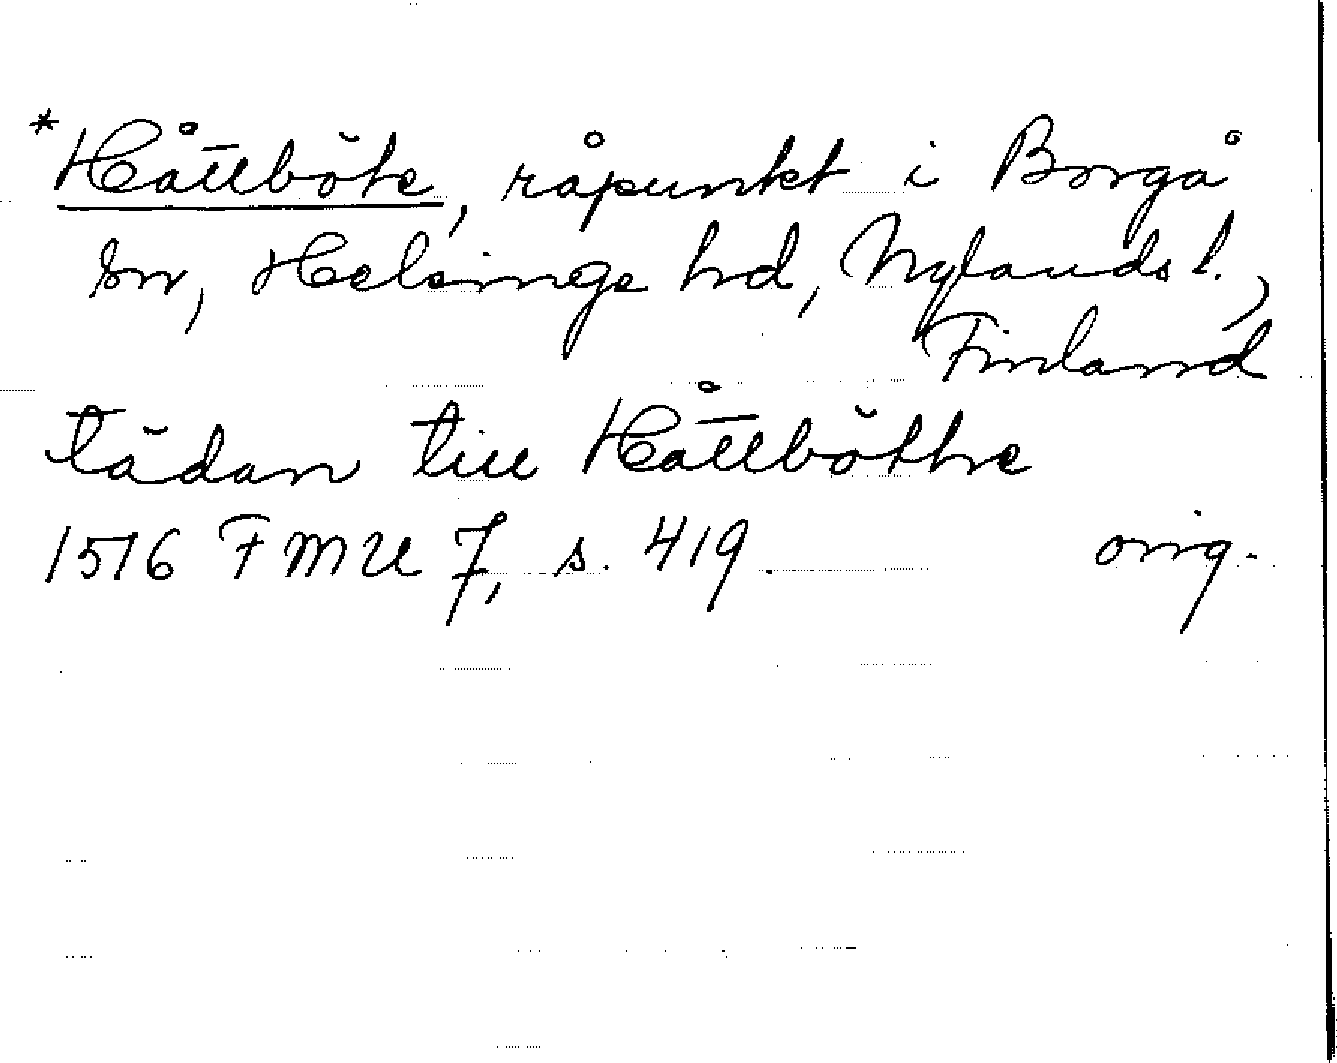 *Håttböte, råpunkt i Borgå
sn, Helsinge hd, Nylands l.,
Finland
tädan till Håttböthe
1516 FMU 7, s. 419. orig.